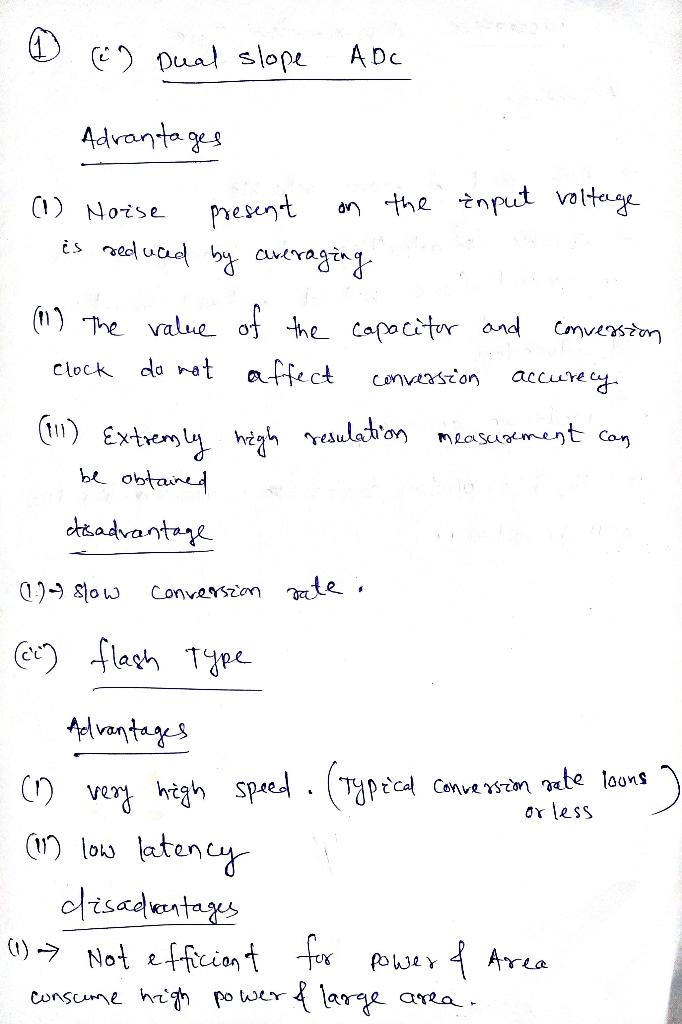 ① (i) Dual slope ADC
Advantages
(I) Noise present on the input voltage
is reduced by averaging
(II) The value of the capacitor and conversion
clock do not affect conversion accuracy
(III) Extremly high resulation measurement can
be obtained
disadvantage
(I.)→ slow conversion rate.
(ii) flash Type
Advantages
(I) very high speed. (Typical conversion rate 100ns
or less)
(II) low latency
disadvantages
(I) → Not efficient for power & Area
consume high power & large area.